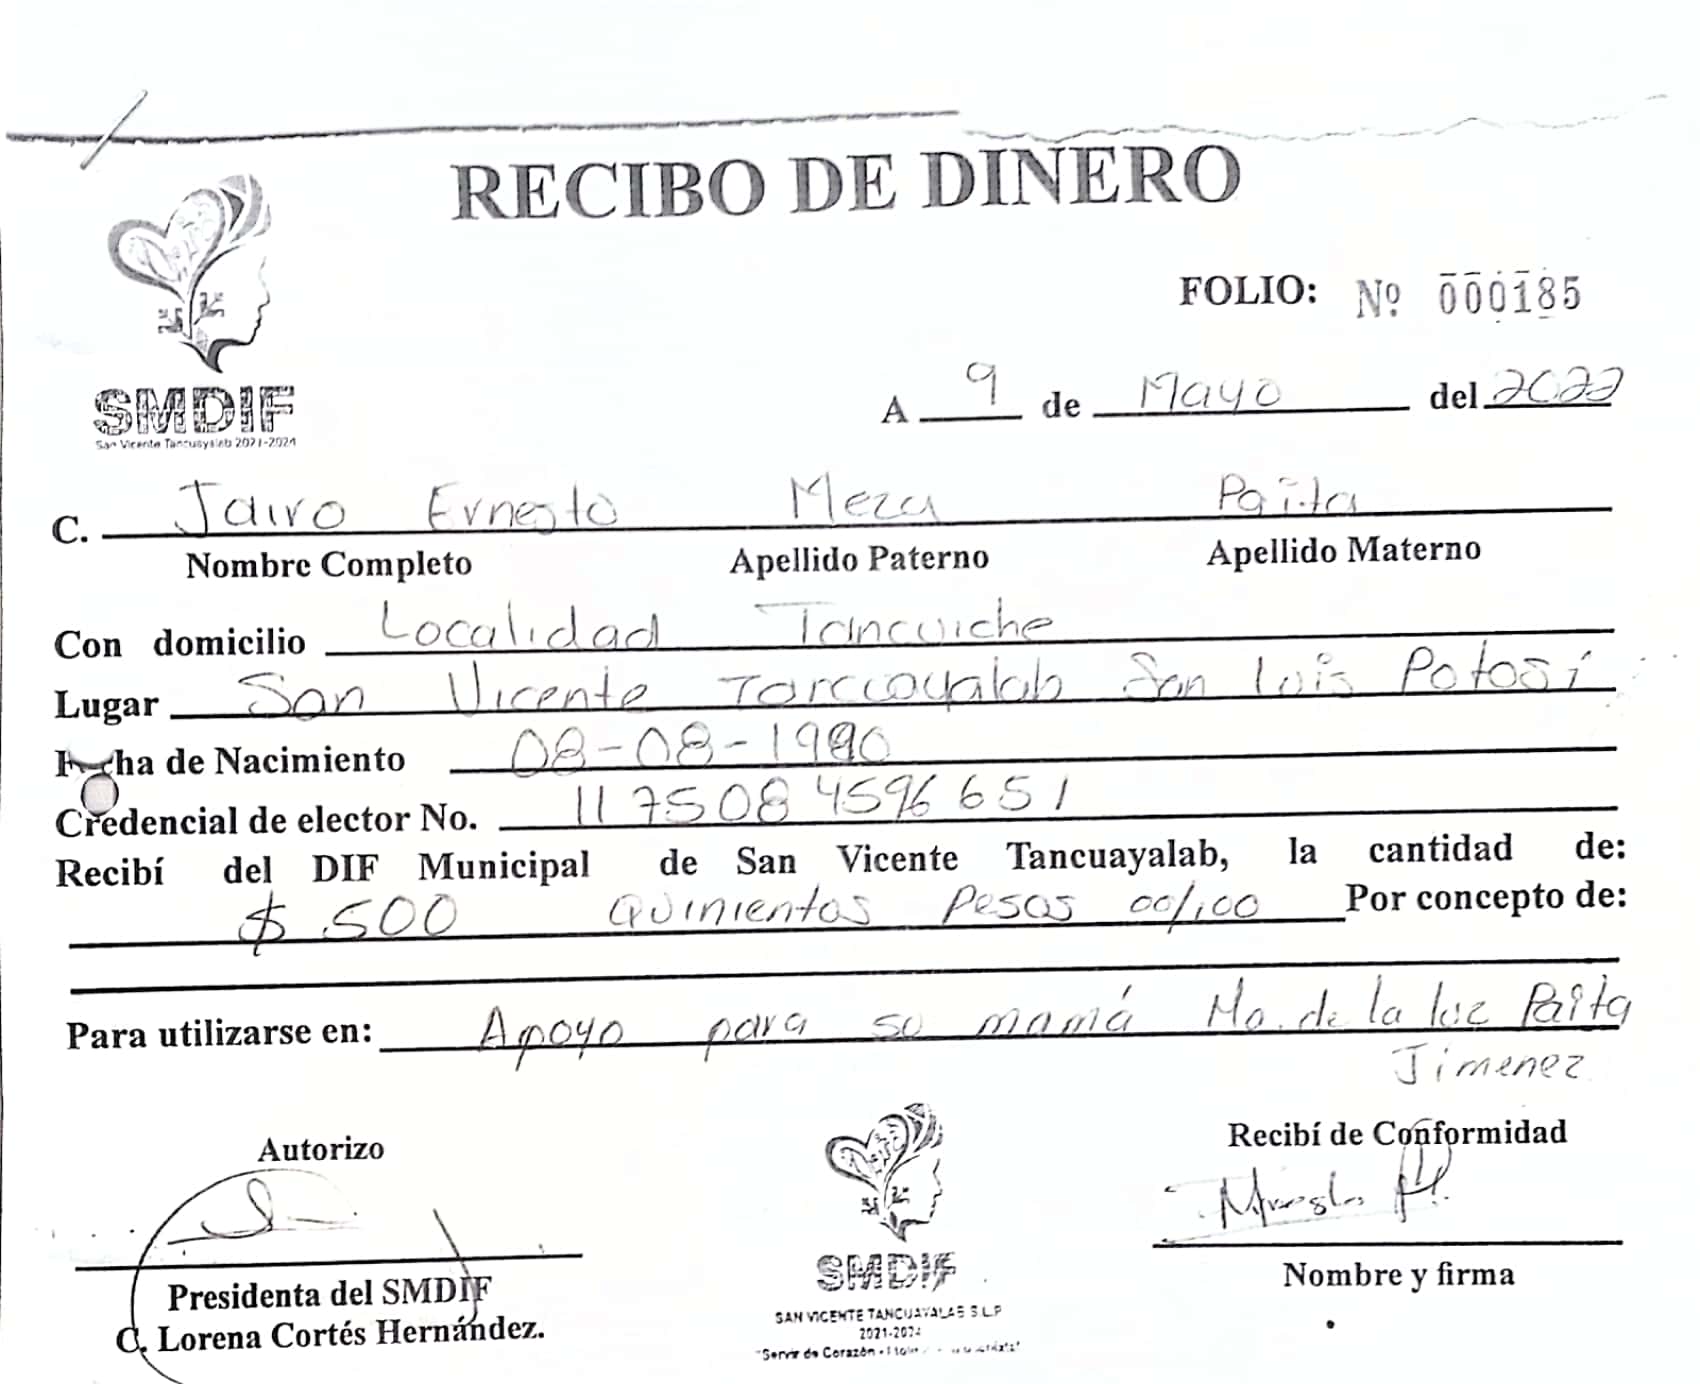 RECIBO DE DINERO
FOLIO: Nº 000185
SMDIF
San Vicente Tancuayalab 2021-2024
A 9 de Mayo del 2022
C. Jairo Ernesto Meza Paita
Nombre Completo Apellido Paterno Apellido Materno
Con domicilio Localidad Tancuiche
Lugar San Vicente Tancuayalab San Luis Potosí
Fecha de Nacimiento 08-08-1980
Credencial de elector No. 1175084596651
Recibí del DIF Municipal de San Vicente Tancuayalab, la cantidad de:
$ 500 Quinientos Pesos 00/100 Por concepto de:
Para utilizarse en: Apoyo para su mamá Ma. de la luz Paita
Jimenez
Autorizo
Recibí de Conformidad
Presidenta del SMDIF
C. Lorena Cortés Hernández.
SMDIF
SAN VICENTE TANCUAYALAB S.L.P
2021-2024
"Servir de Corazón
Nombre y firma